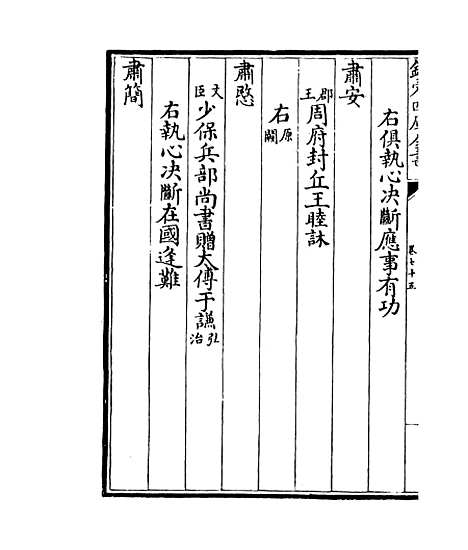 欽定四庫全書
卷七十五
右俱執心決斷應事有功
肅安
郡王周府封丘王睦𣗳
右原闕
肅愍
文臣少保兵部尚書贈太傅于謙弘治
右執心決斷在國逢難
肅簡